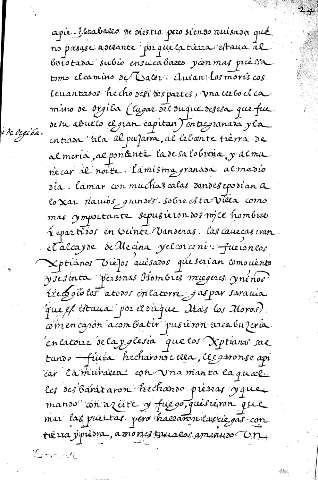 apie. El cavallo de diestro pero siendo avisada que
no pasase adelante porque la tierra estava al
borotada subio en su cavallo y con mas priessa
tomo el camino de Valor. Avian los moriscos
levantados hecho de si dos partes, una llevo el ca
mino de orgiba (lugar del duque de sesa que fue
de su abuelo el gran capitan) entre granada y la
entrada del alpujarra, al lebante tierra de
almeria, al poniente la de salobreña, y alma
ñecar al norte. la misma granada al medio
dia. la mar con muchas calas donde se podian a
loxar navios grandes. sobre esta Villa como
mas ymportante se pusieron dos mill hombres
repartidos en veinte Vanderas. las cavecas eran
el alcayde de Mecina y el corceni. fueron los
Xptianos Viejos avisados que serian como ciento
y sesenta personas hombres mugeres y niños
recogiolos a todos en la torre gaspar saravia
que estava por el duque Mas los Moros
començaron a combatir pusieron arcabuzeria
en la torre de la yglesia que los Xptianos sal
tando fuera hecharon de ella, llegaronse a pi
car la muralla con una manta la qual
les desbarataron hechando piedras y que
mando con azeite y fuego, quisieron que
mar las puertas. pero hallaron las ciegas con
tierra y piedra, amonestavalos amenudo Un